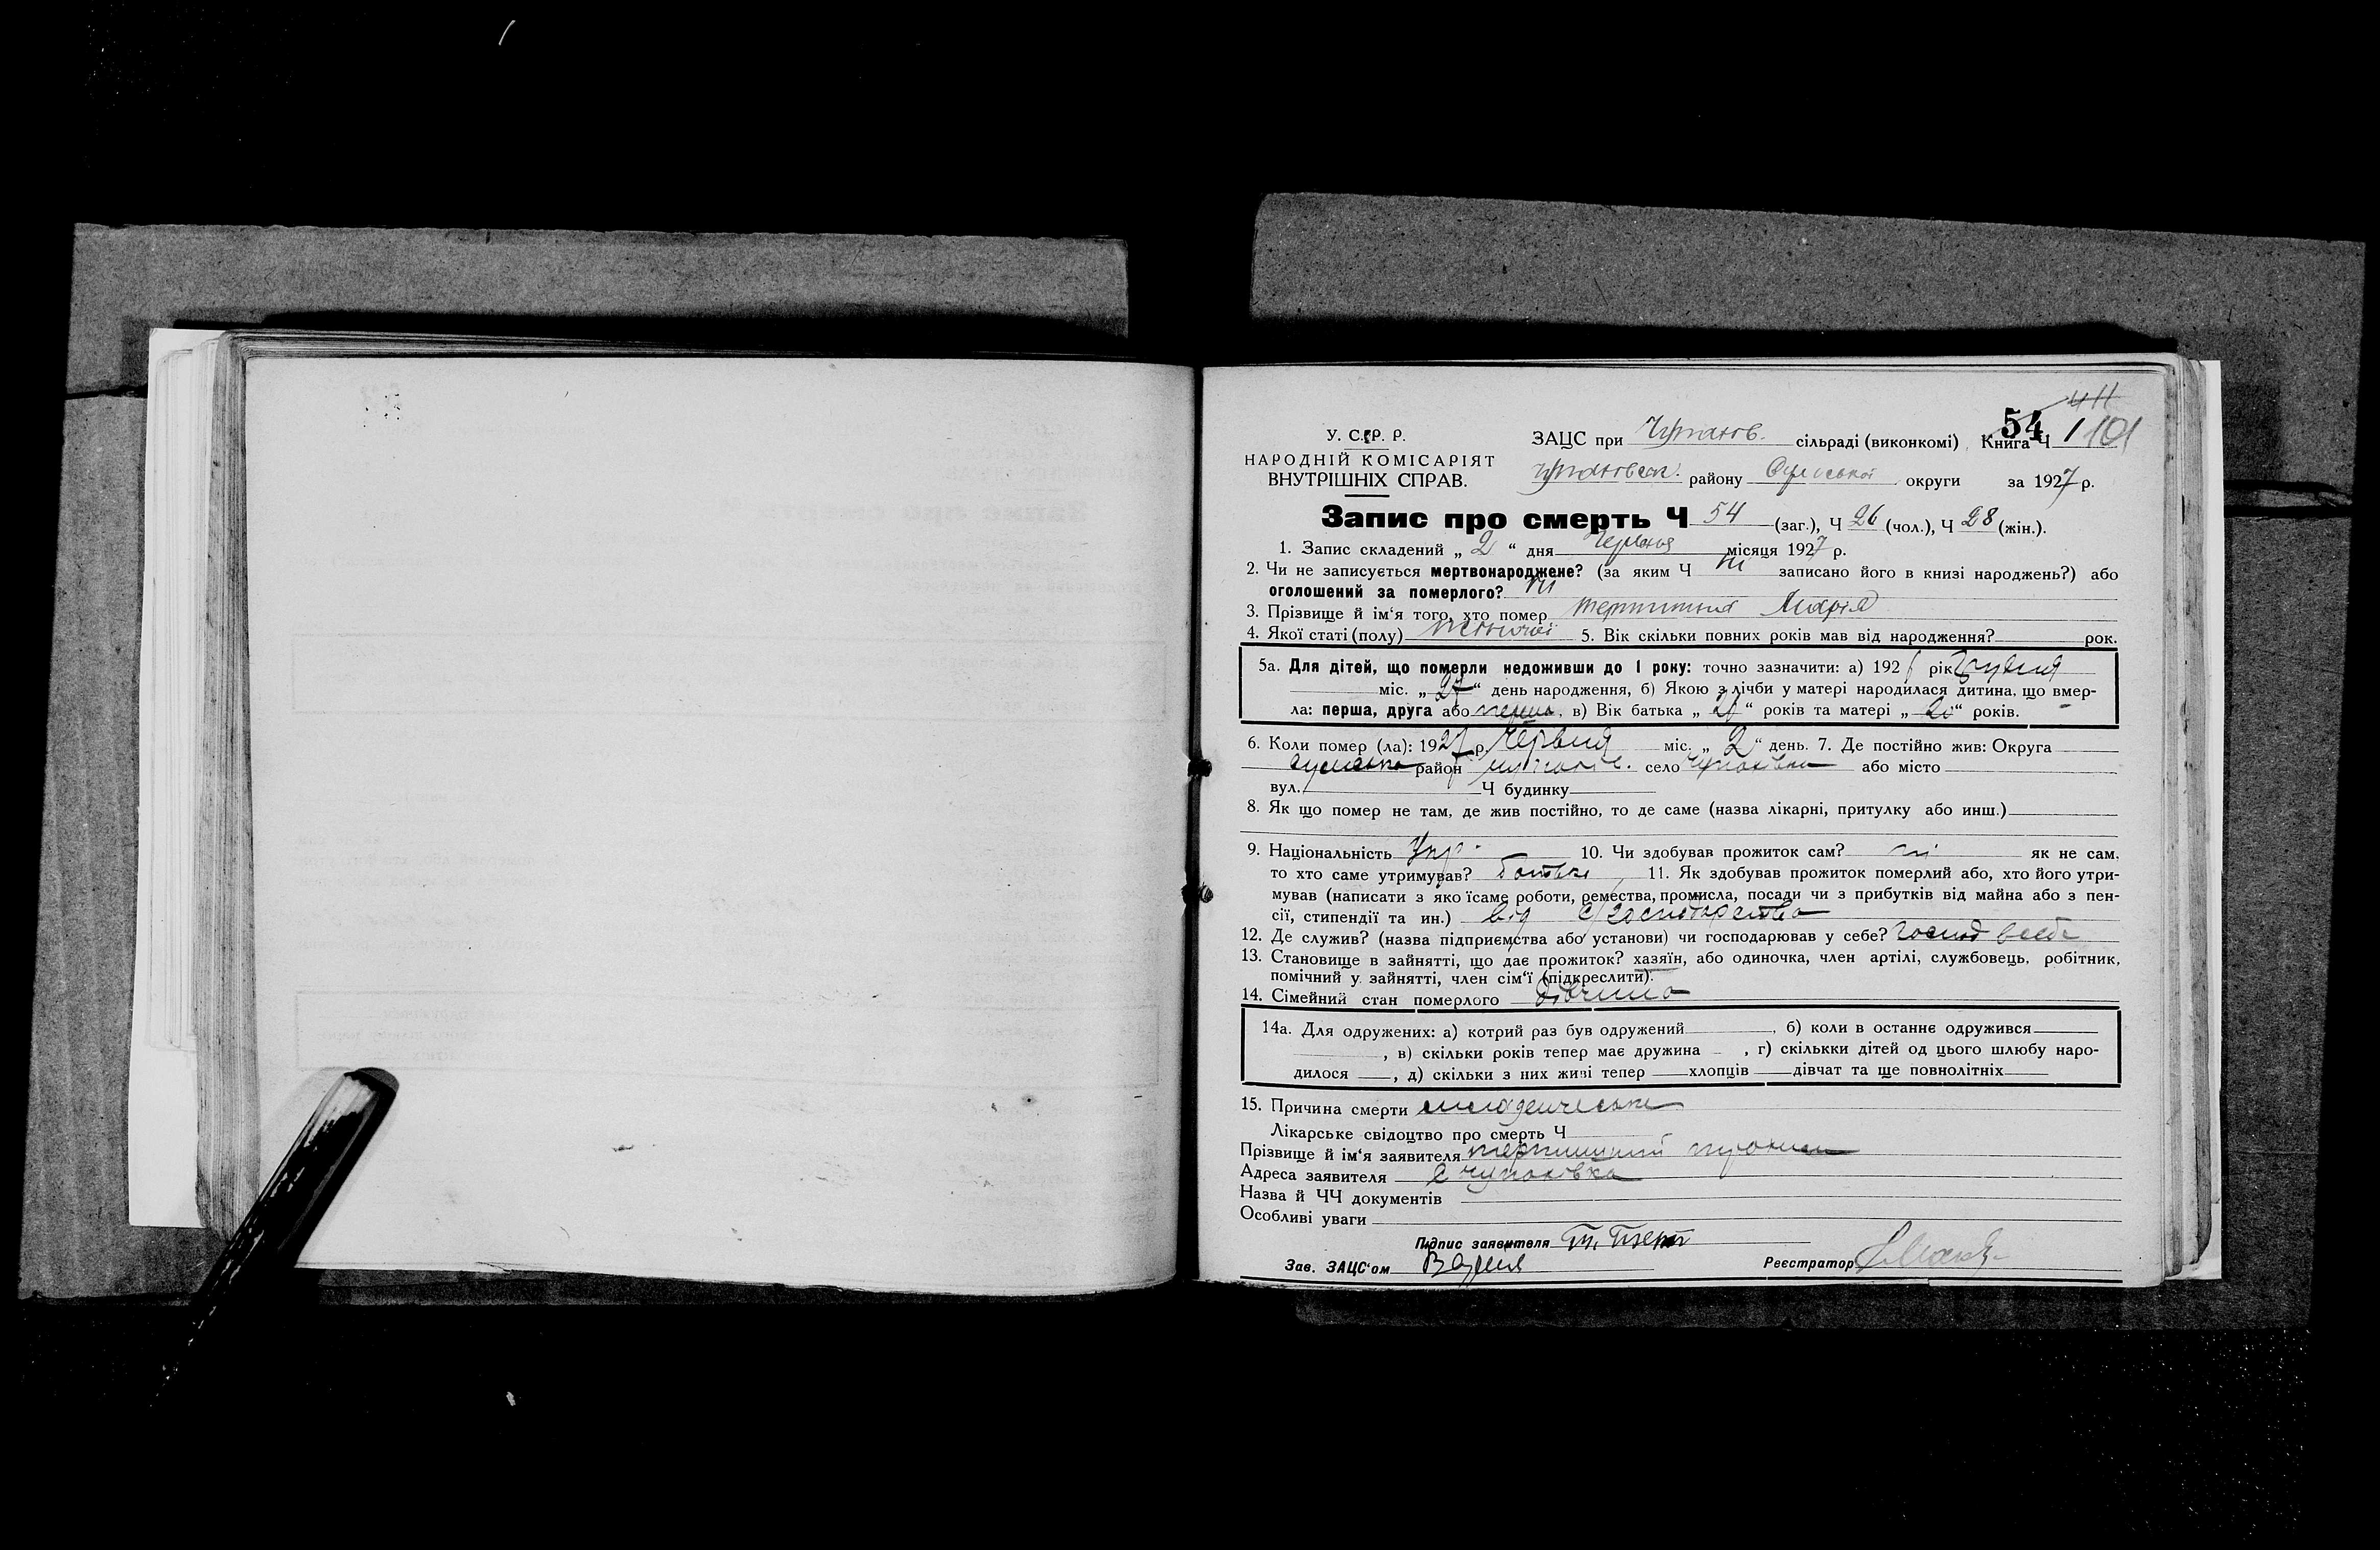 54 1 101
У. С. Р. Р.
НАРОДНІЙ КОМІСАРІЯТ
ВНУТРІШНІХ СПРАВ.
ЗАЦС при Чупахов. сільраді (виконкомі) Книга Ч
Чупаховськ. району Сумської округи за 1927 р.
Запис про смерть Ч 54 (заг.), Ч 26 (чол.), Ч 28 (жін.).
1. Запис складений „ 2 “ дня Червня місяця 1927 р.
2. Чи не записується мертвонароджене? (за яким Ч ні записано його в книзі народжень?) або
оголошений за померлого? ні
3. Прізвище й ім‘я того, хто помер Марія
4. Якої статі (полу) жіночої 5. Вік скільки повних років мав від народження? рок.
5а. Для дітей, що померли недоживши до 1 року: точно зазначити: а) 192 рік Грудня
міс. „ 27 “ день народження, б) Якою з лічби у матері народилася дитина, що вмер-
ла: перша, друга або перша, в) Вік батька „ “ років та матері „ 20 “ років.
6. Коли помер (ла): 1927 р. Червня міс. „ 2 “ день. 7. Де постійно жив: Округа
Сумська район Чупахів. село Чупахівка або місто
вул. Ч будинку
8. Як що помер не там, де жив постійно, то де саме (назва лікарні, притулку або инш.)
9. Національність Укр. 10. Чи здобував прожиток сам? ні як не сам,
то хто саме утримував? батьки 11. Як здобував прожиток померлий або, хто його утри-
мував (написати з яко їсаме роботи, ремества, промисла, посади чи з прибутків від майна або з пен-
сії, стипендії та ин.) від с/господарства
12. Де служив? (назва підприємства або установи) чи господарював у себе? господ в себе
13. Становище в зайнятті, що дає прожиток? хазяїн, або одиночка, член артілі, службовець, робітник,
помічний у зайнятті, член сім‘ї (підкреслити).
14. Сімейний стан померлого дівчина
14а. Для одружених: а) котрий раз був одружений , б) коли в останнє одружився
, в) скільки років тепер має дружина , г) скількки дітей од цього шлюбу наро-
дилося , д) скільки з них живі тепер хлопців дівчат та ще повнолітніх
15. Причина смерти
Лікарське свідоцтво про смерть Ч
Прізвище й ім‘я заявителя
Адреса заявителя с Чупахівка
Назва й ЧЧ документів
Особливі уваги
Підпис заявителя
Зав. ЗАЦС‘ом
Реєстратор